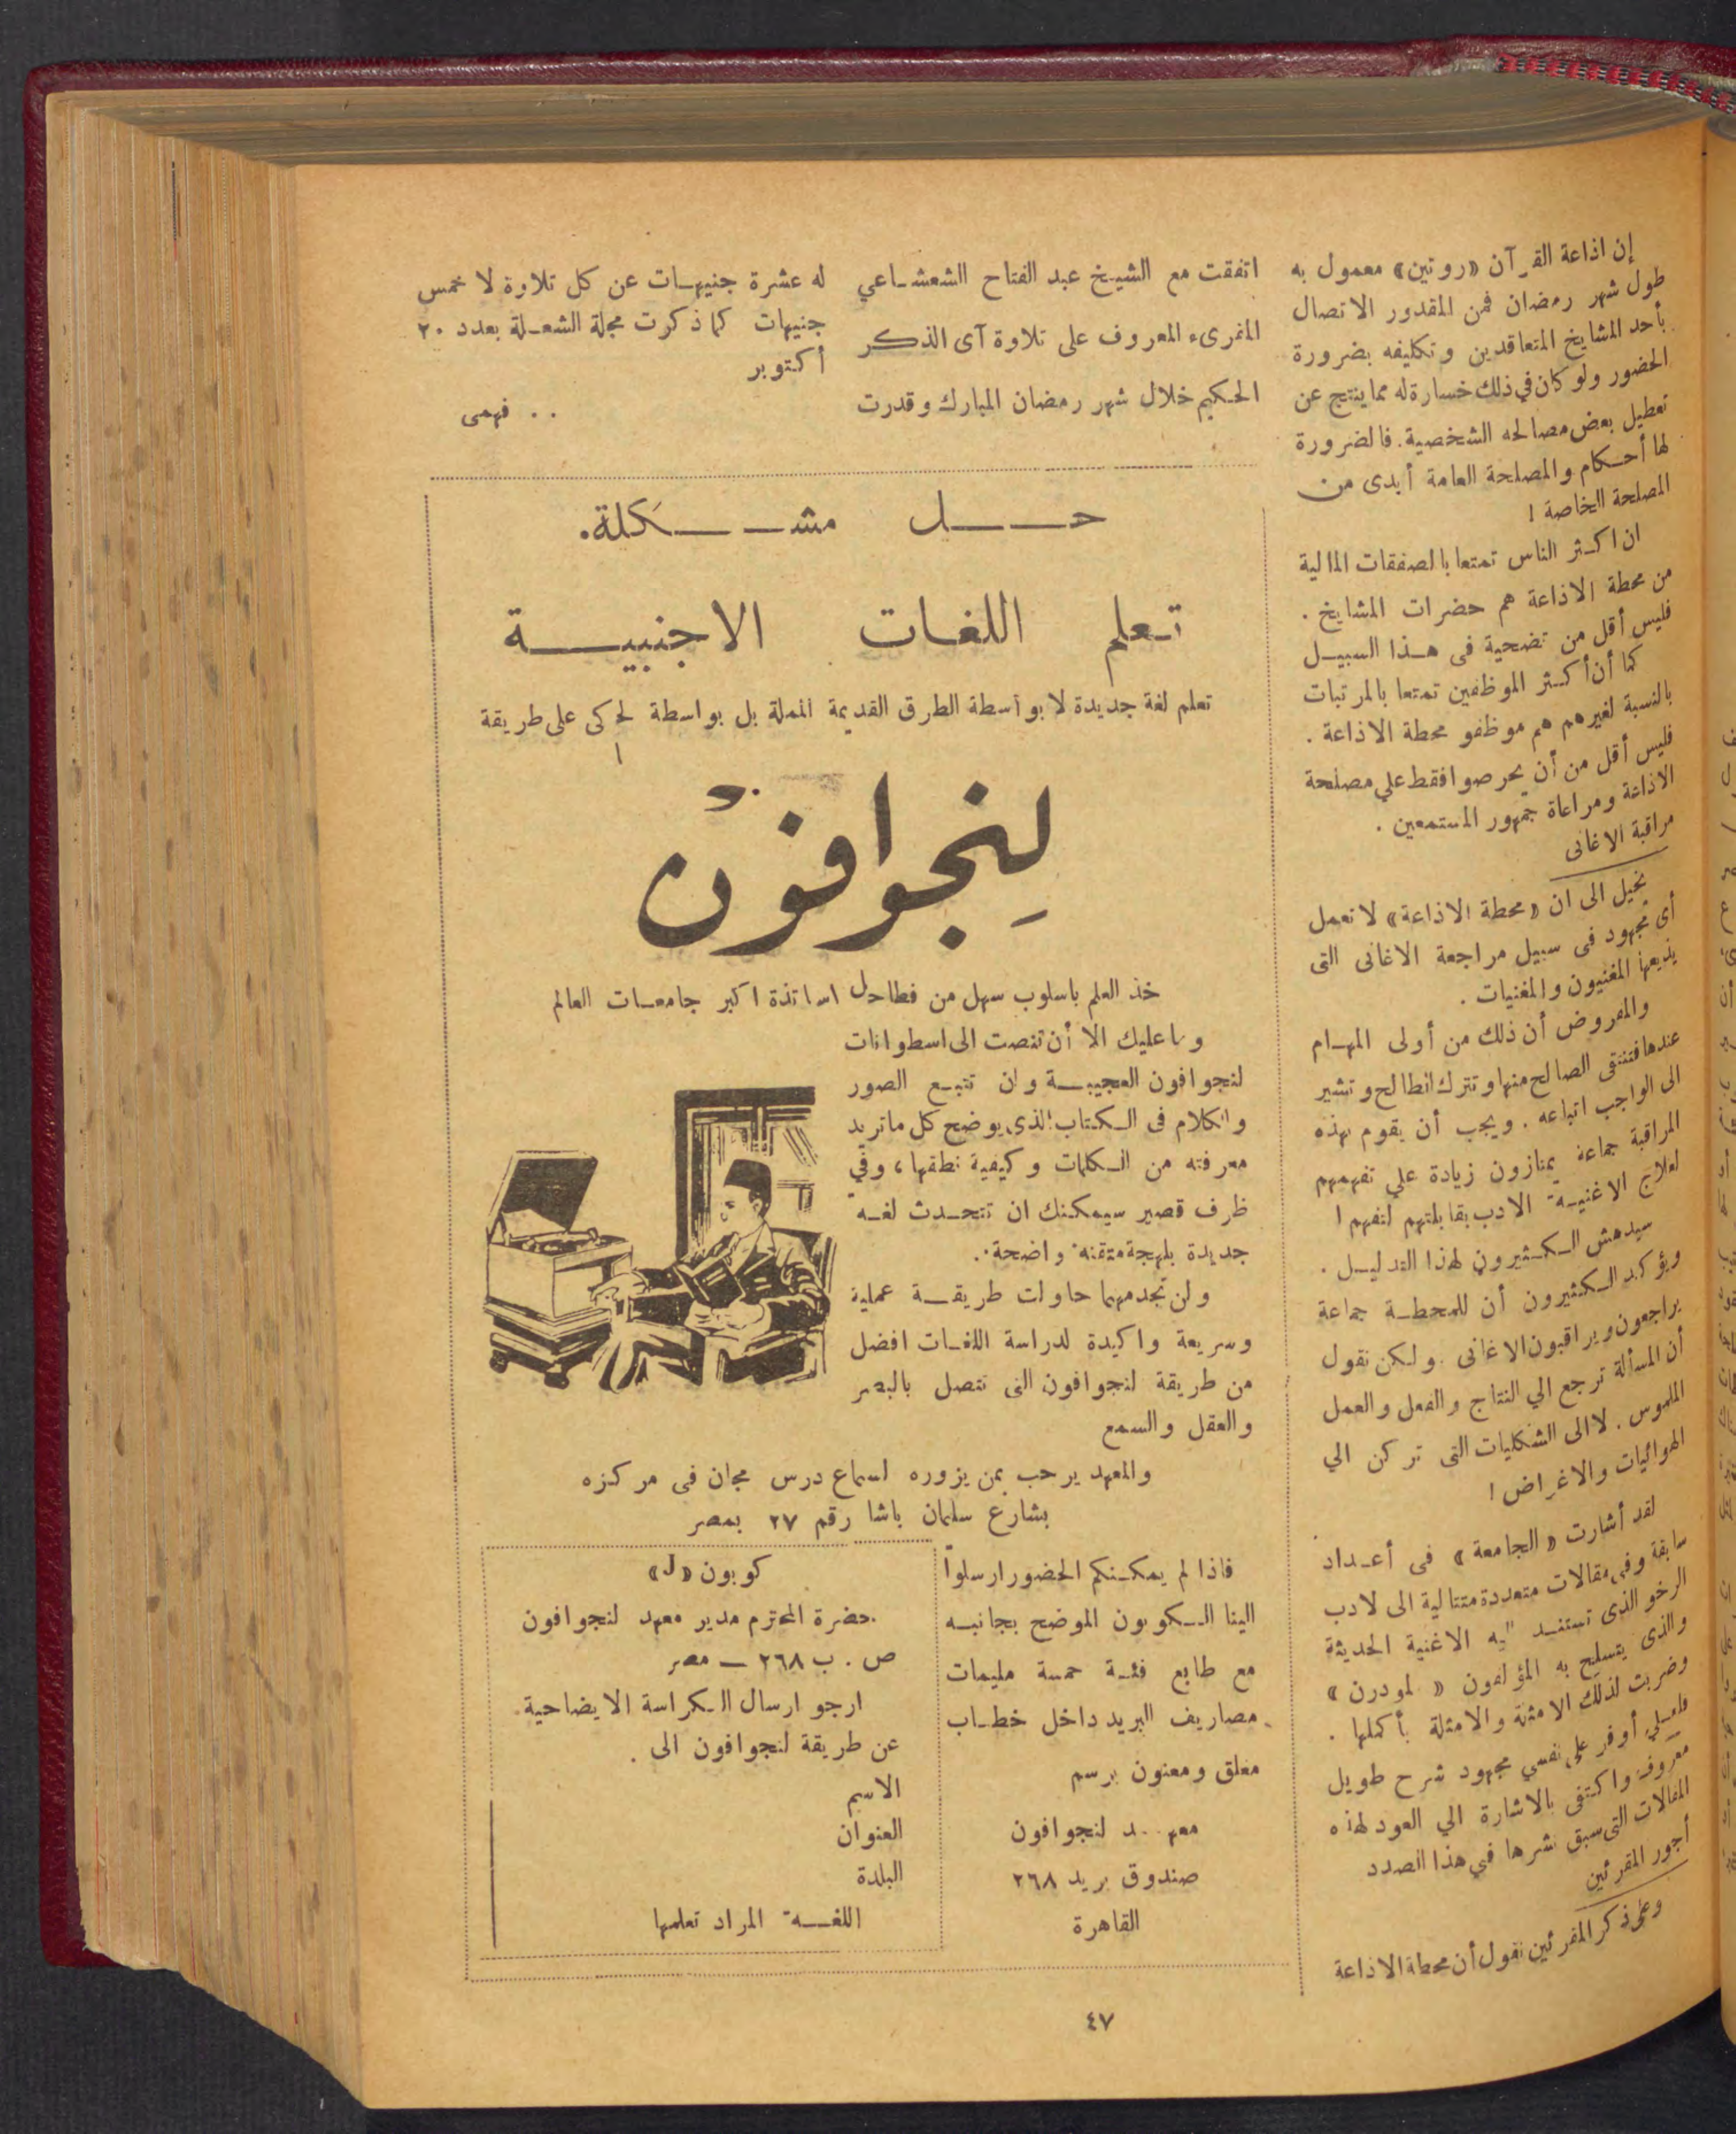 إن اذاعة القرآن «روتين» معمول به
طول شهر رمضان فمن المقدور الاتصال
بأحد المشايخ المتعاقدين وتكليفه بضرورة
الحضور ولو كان في ذلك خسارة له مما ينتج عن
تعطيل بعض مصالحه الشخصية. فالضرورة
لها أحكام والمصلحة العامة أبدى من
المصلحة الخاصة !
ان اكثر الناس تمتعا بالصفقات المالية
من محطة الاذاعة هم حضرات المشايخ .
فليس أقل من تضحية فى هذا السبيل
كما أن أكثر الموظفين تمتعا بالمرتبات
بالنسبة لغيرهم هم موظفو محطة الاذاعة .
فليس أقل من أن يحرصوا فقط علي مصلحة
الاذاعة ومراعاة جمهور المستمعين .
مراقبة الاغانى
يخيل الى ان «محطة الاذاعة» لا تعمل
أى مجهود فى سبيل مراجعة الاغانى التى
يذيعها المغنيون والمغنيات .
والمفروض أن ذلك من أولى المهام
عندها فتنتقى الصالح منها وتترك الطالح وتشير
الى الواجب اتباعه . ويجب أن يقوم بهذه
المراقبة جماعة يمتازون زيادة علي تفهمهم
لعلاج الاغنية الادب بقابلتهم لتفهم !
سيدهش الكثيرون لهذا التدليل .
ويؤكد الكثيرون أن للمحطة جماعة
يراجعون ويراقبون الاغانى . ولكن نقول
أن المسألة ترجع الي النتاج والفعل والعمل
الملموس . لا الى الشكليات التى تركن الي
الهوائيات والاغراض !
لقد أشارت «الجامعة» فى أعداد
سابقة وفى مقالات متعددة متتالية الى لادب
الرخو الذى تستند اليه الاغنية الحديثة
والذى يتسلح به المؤلفون « لمودرن »
وضربت لذلك الامثلة والامثلة بأكملها .
فلعلي أوفر على نفسي مجهود شرح طويل
معروف واكتفى بالاشارة الي العود لهذه
المقالات التى سبق نشرها في هذا الصدد
أجور المقرئين
وعلى ذكر المقرئين نقول أن محطة الاذاعة
اتفقت مع الشيخ عبد الفتاح الشعشاعي
المقرىء المعروف على تلاوة آى الذكر
الحكيم خلال شهر رمضان المبارك وقدرت
له عشرة جنيهات عن كل تلاوة لا خمس
جنيهات كما ذكرت مجلة الشعلة بعدد ٢٠
أكتوبر
. . فهمى
حل مشكلة.
تعلم اللغات الاجنبية
تعلم لغة جديدة لا بواسطة الطرق القديمة المملة بل بواسطة لحاكى على طريقة
لِنجوافون
خذ العلم باسلوب سهل من فطاحل اساتذة اكبر جامعات العالم
وما عليك الا أن تنصت الى اسطوانات
لنجوافون العجيبة وان تتبع الصور
والكلام فى الكتاب الذى يوضح كل ماتريد
معرفته من الكلمات وكيفية نطقها ، وفي
ظرف قصير سيمكنك ان تتحدث لغة
جديدة بلهجة متقنة واضحة .
ولن تجد مهما حاولت طريقة عملية
وسريعة واكيدة لدراسة اللغات افضل
من طريقة لنجوافون التى تتصل بالبصر
والعقل والسمع
والمعهد يرحب بمن يزوره لسماع درس مجان فى مركزه
بشارع سليمان باشا رقم ٢٧ بمصر
فاذا لم يمكنكم الحضور ارسلوا
الينا الكوبون الموضح بجانبه
مع طابع فئة خمسة مليمات
مصاريف البريد داخل خطاب
مغلق ومعنون برسم
معهد لنجوافون
صندوق بريد ٢٦٨
القاهرة
كوبون «ل»
حضرة المحترم مدير معهد لنجوافون
ص . ب ٢٦٨ — مصر
ارجو ارسال الكراسة الايضاحية
عن طريقة لنجوافون الى .
الاسم
العنوان
البلدة
اللغة المراد تعلمها
٤٧